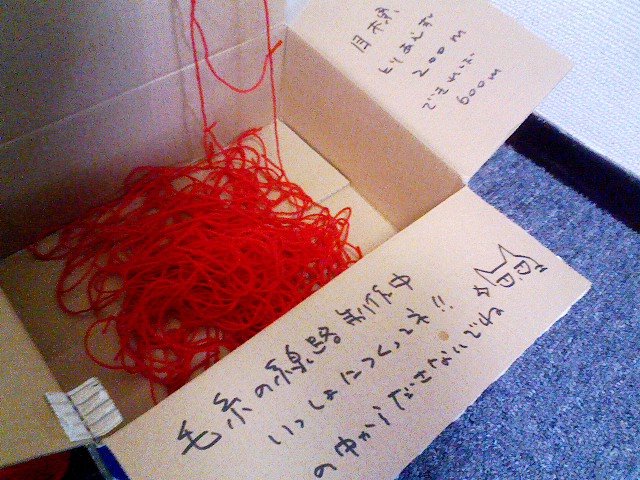 目標
とりあえず
200m
できれば
600m
毛糸の線路制作中
いっしょにつくってネ!!
の中からださないでね